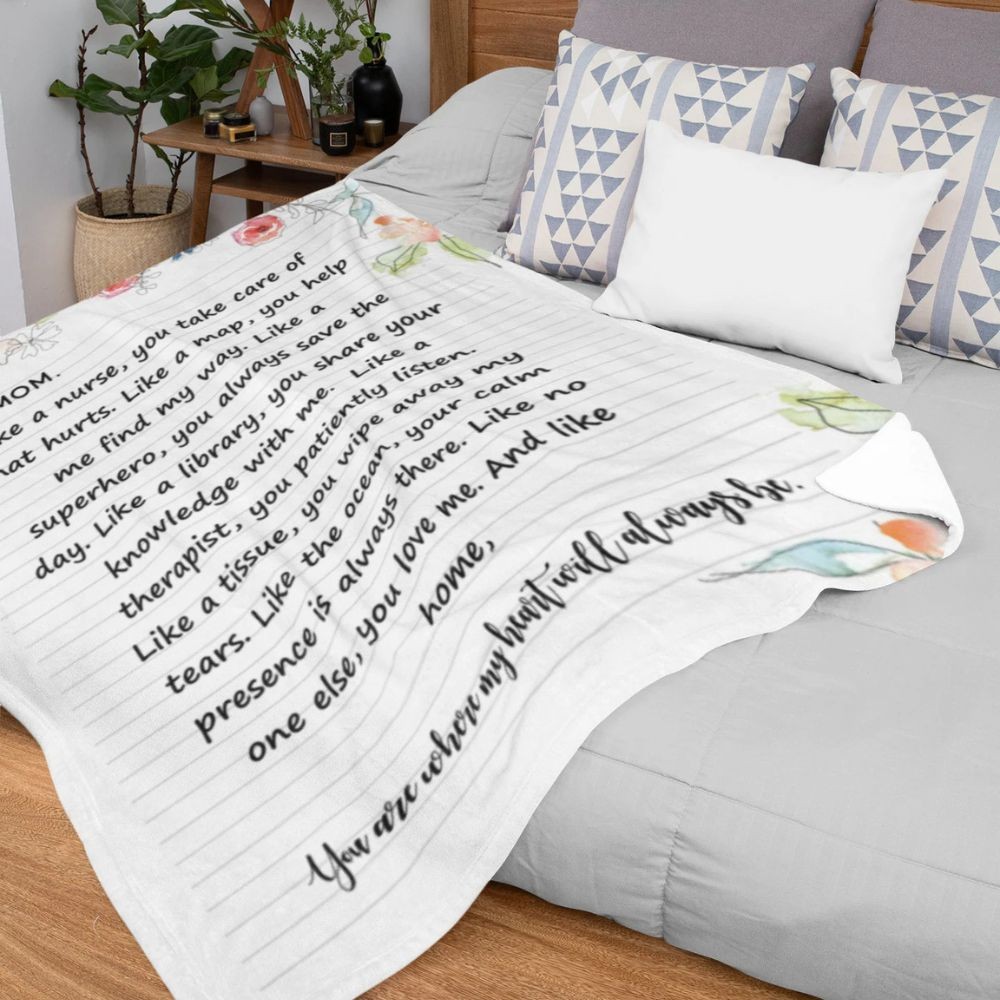 MOM.
ke a nurse, you take care of
hat hurts. Like a map, you help
me find my way. Like a
superhero, you always save the
day. Like a library, you share your
knowledge with me. Like a
therapist, you patiently listen.
Like a tissue, you wipe away my
tears. Like the ocean, your calm
presence is always there. Like no
one else, you love me. And like
home,
You are where my heart will always be.